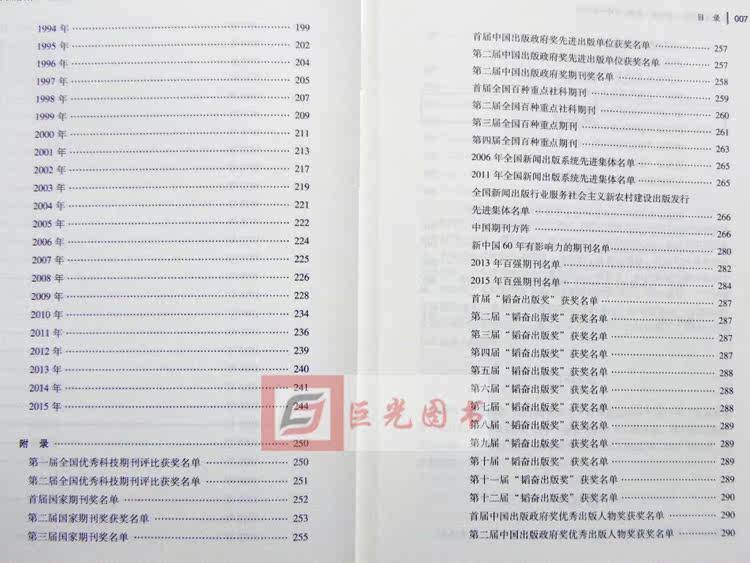 1994 年 199
1995 年 202
1996 年 204
1997 年 205
1998 年 207
1999 年 209
2000 年 211
2001 年 213
2002 年 217
2003 年 219
2004 年 221
2005 年 222
2006 年 224
2007 年 225
2008 年 226
2009 年 228
2010 年 234
2011 年 236
2012 年 239
2013 年 240
2014 年 241
2015 年 244
附 录 250
第一届全国优秀科技期刊评比获奖名单 250
第二届全国优秀科技期刊评比获奖名单 251
首届国家期刊奖名单 252
第二届国家期刊奖获奖名单 253
第三届国家期刊奖名单 255
目 录 007
首届中国出版政府奖先进出版单位获奖名单 257
第二届中国出版政府奖先进出版单位获奖名单 257
第二届中国出版政府奖期刊奖名单 258
首届全国百种重点社科期刊 259
第二届全国百种重点社科期刊 260
第三届全国百种重点期刊 261
第四届全国百种重点期刊 263
2006 年全国新闻出版系统先进集体名单 265
2011 年全国新闻出版系统先进集体名单 265
全国新闻出版行业服务社会主义新农村建设出版发行
先进集体名单 266
中国期刊方阵 266
新中国 60 年有影响力的期刊名单 280
2013 年百强期刊名单 282
2015 年百强期刊名单 284
首届“韬奋出版奖”获奖名单 287
第二届“韬奋出版奖”获奖名单 287
第三届“韬奋出版奖”获奖名单 287
第四届“韬奋出版奖”获奖名单 287
第五届“韬奋出版奖”获奖名单 288
第六届“韬奋出版奖”获奖名单 288
第七届“韬奋出版奖”获奖名单 288
第八届“韬奋出版奖”获奖名单 289
第九届“韬奋出版奖”获奖名单 289
第十届“韬奋出版奖”获奖名单 289
第十一届“韬奋出版奖”获奖名单 290
第十二届“韬奋出版奖”获奖名单 290
首届中国出版政府奖优秀出版人物奖获奖名单 290
第二届中国出版政府奖优秀出版人物奖获奖名单 290
巨光图书